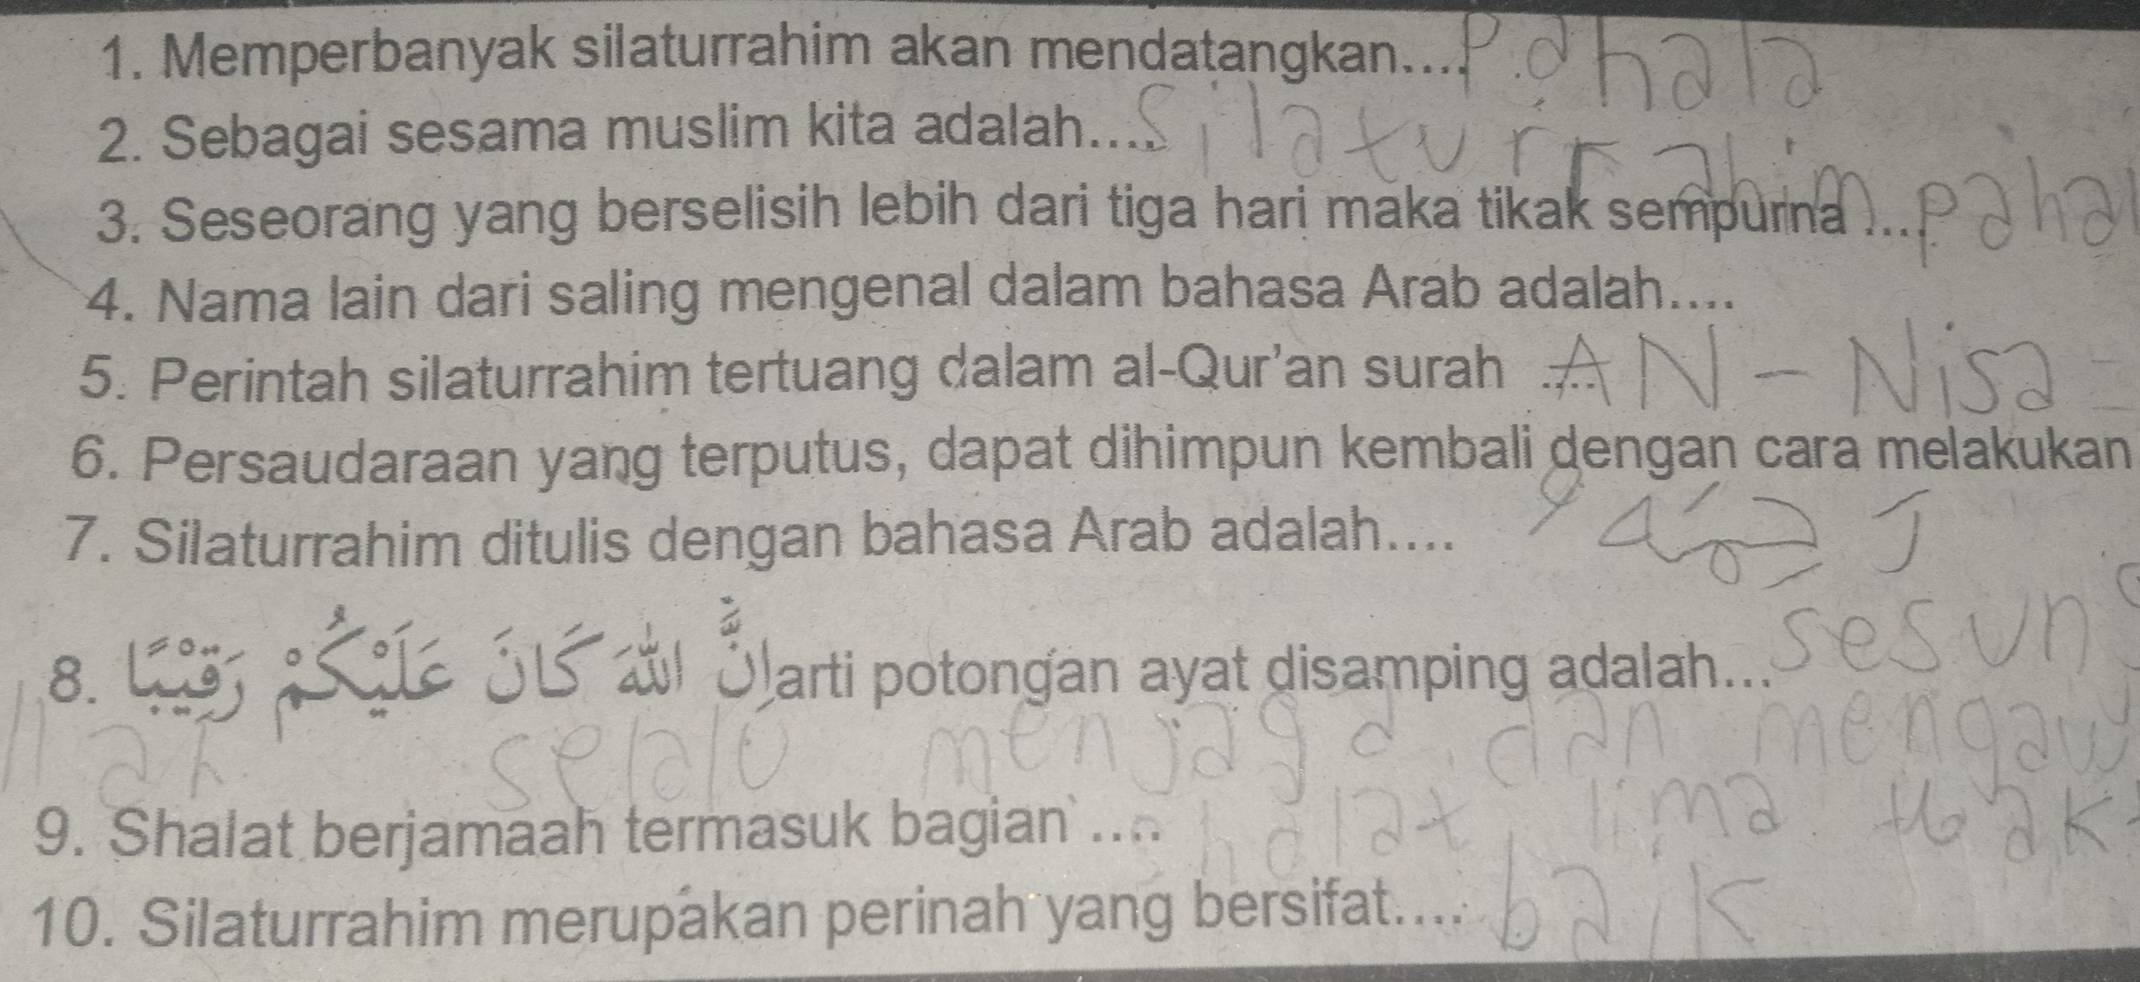 1. Memperbanyak silaturrahim akan mendatangkan.... Pahala
2. Sebagai sesama muslim kita adalah.... Silaturrahim
3. Seseorang yang berselisih lebih dari tiga hari maka tikak sempurna .... pahal
4. Nama lain dari saling mengenal dalam bahasa Arab adalah....
5. Perintah silaturrahim tertuang dalam al-Qur'an surah .... AN - Nisa
6. Persaudaraan yang terputus, dapat dihimpun kembali dengan cara melakukan
7. Silaturrahim ditulis dengan bahasa Arab adalah....
8. اِنَّ اللّٰهَ كَانَ عَلَيْكُمْ رَقِيْبًا arti potongan ayat disamping adalah... sesun
llah selalu menjaga dan mengaw
9. Shalat berjamaah termasuk bagian .... shalat lima wak
10. Silaturrahim merupakan perinah yang bersifat.... baik